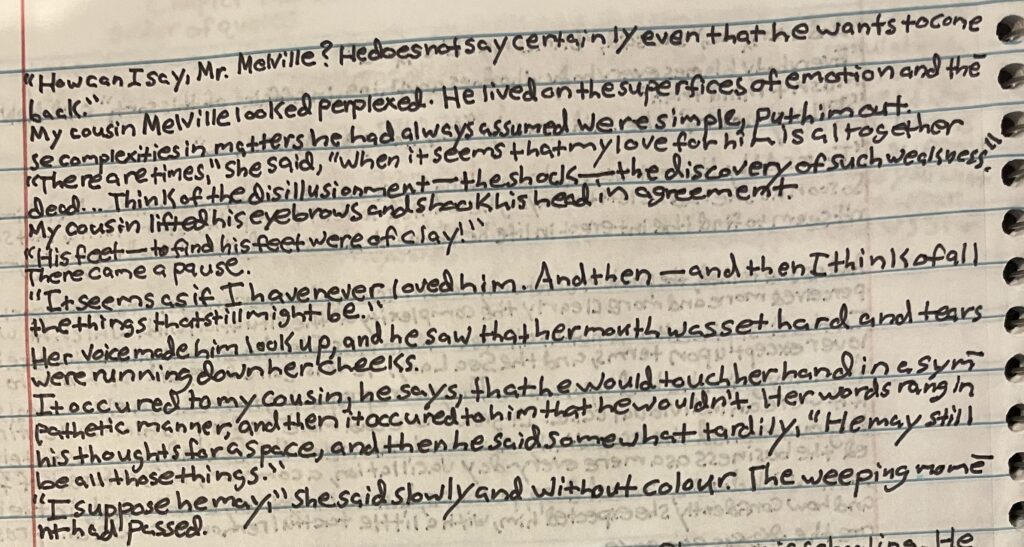 "How can I say, Mr. Melville? He does not say certainly even that he wants to come
back."
My cousin Melville looked perplexed. He lived on the superfices of emotion and the
se complexities in matters he had always assumed were simple, put him out.
"There are times," she said, "When it seems that my love for him is altogether
dead... Think of the disillusionment—the shock—the discovery of such weakness."
My cousin lifted his eyebrows and shook his head in agreement.
"His feet—to find his feet were of clay!"
There came a pause.
"It seems as if I have never loved him. And then—and then I think of all
the things that still might be."
Her voice made him look up, and he saw that her mouth was set hard and tears
were running down her cheeks.
It occured to my cousin, he says, that he would touch her hand in a sym
pathetic manner, and then it occured to him that he wouldn't. Her words rang in
his thoughts for a space, and then he said somewhat tardily, "He may still
be all those things."
"I suppose he may," she said slowly and without colour. The weeping mome
nt had passed.
He